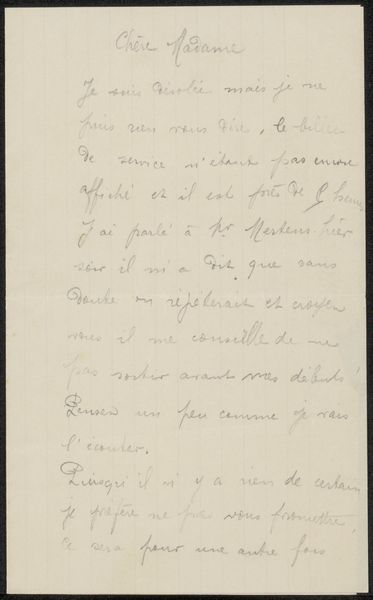 Chère Madame
Je suis désolée mais je ne
puis rien vous dire, le billet
de service n'étant pas encore
affiché et il est près de 9 heures
J'ai parlé à Mr Mertens hier
soir il m'a dit que sans
doute on répèterait et croyez
vous il me conseille de ne
pas sortir avant mes débuts!
Pensez un peu comme je vais
l'écouter.
Puisqu'il n'y a rien de certain
je préfère ne pas vous promettre,
ce sera pour une autre fois